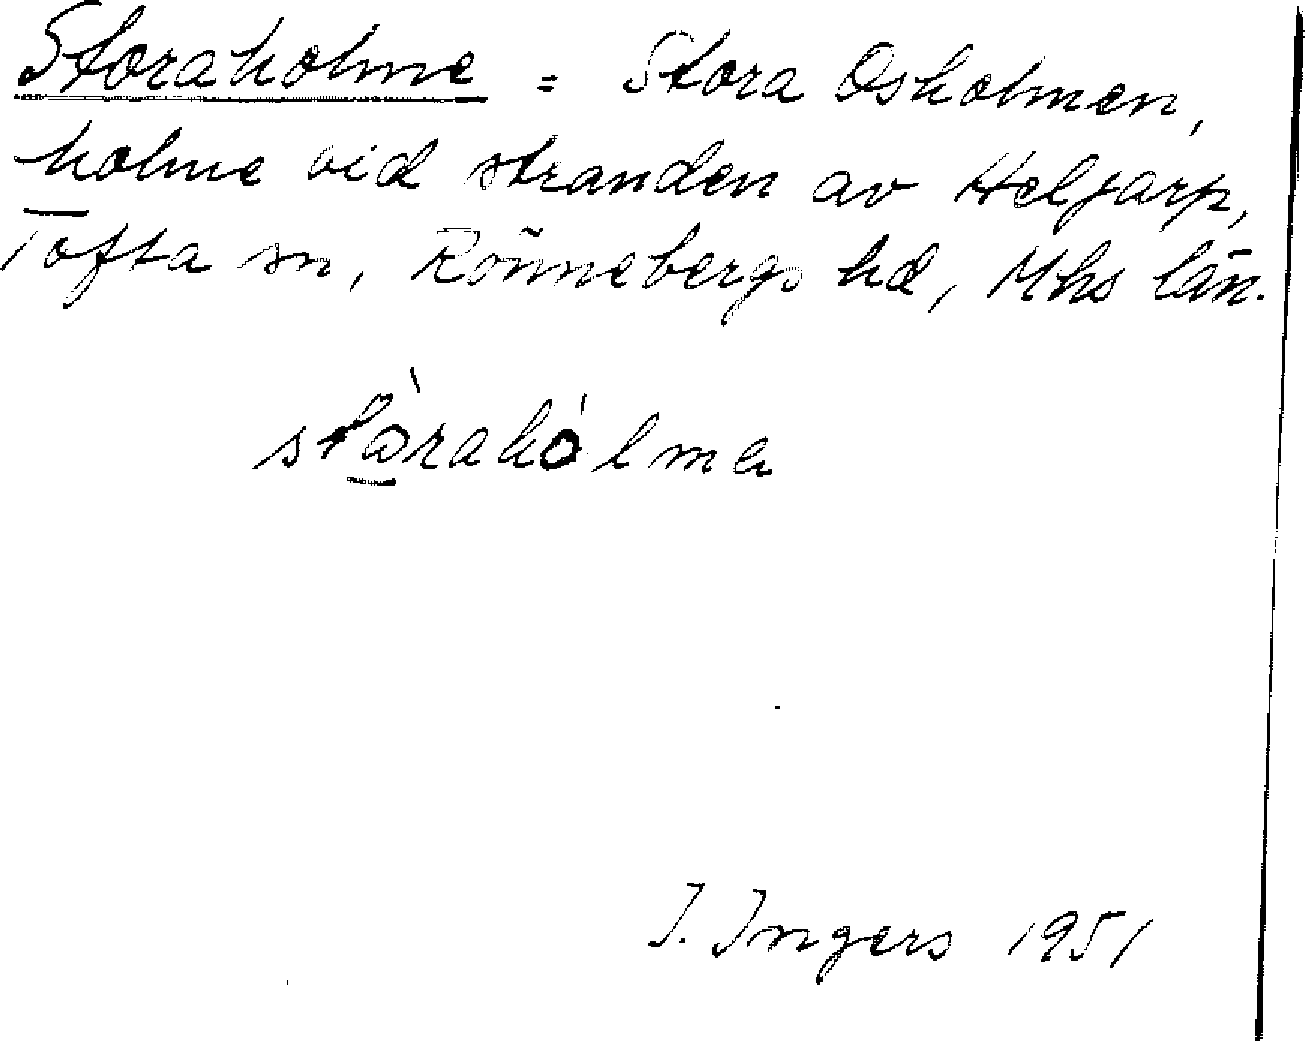 Storaholme = Stora Osholmen,
holme vid stranden av Heljarp,
Tofta sn, Rönnebergs hd, Mhs län.
stòrahólmə
I. Ingers 1951